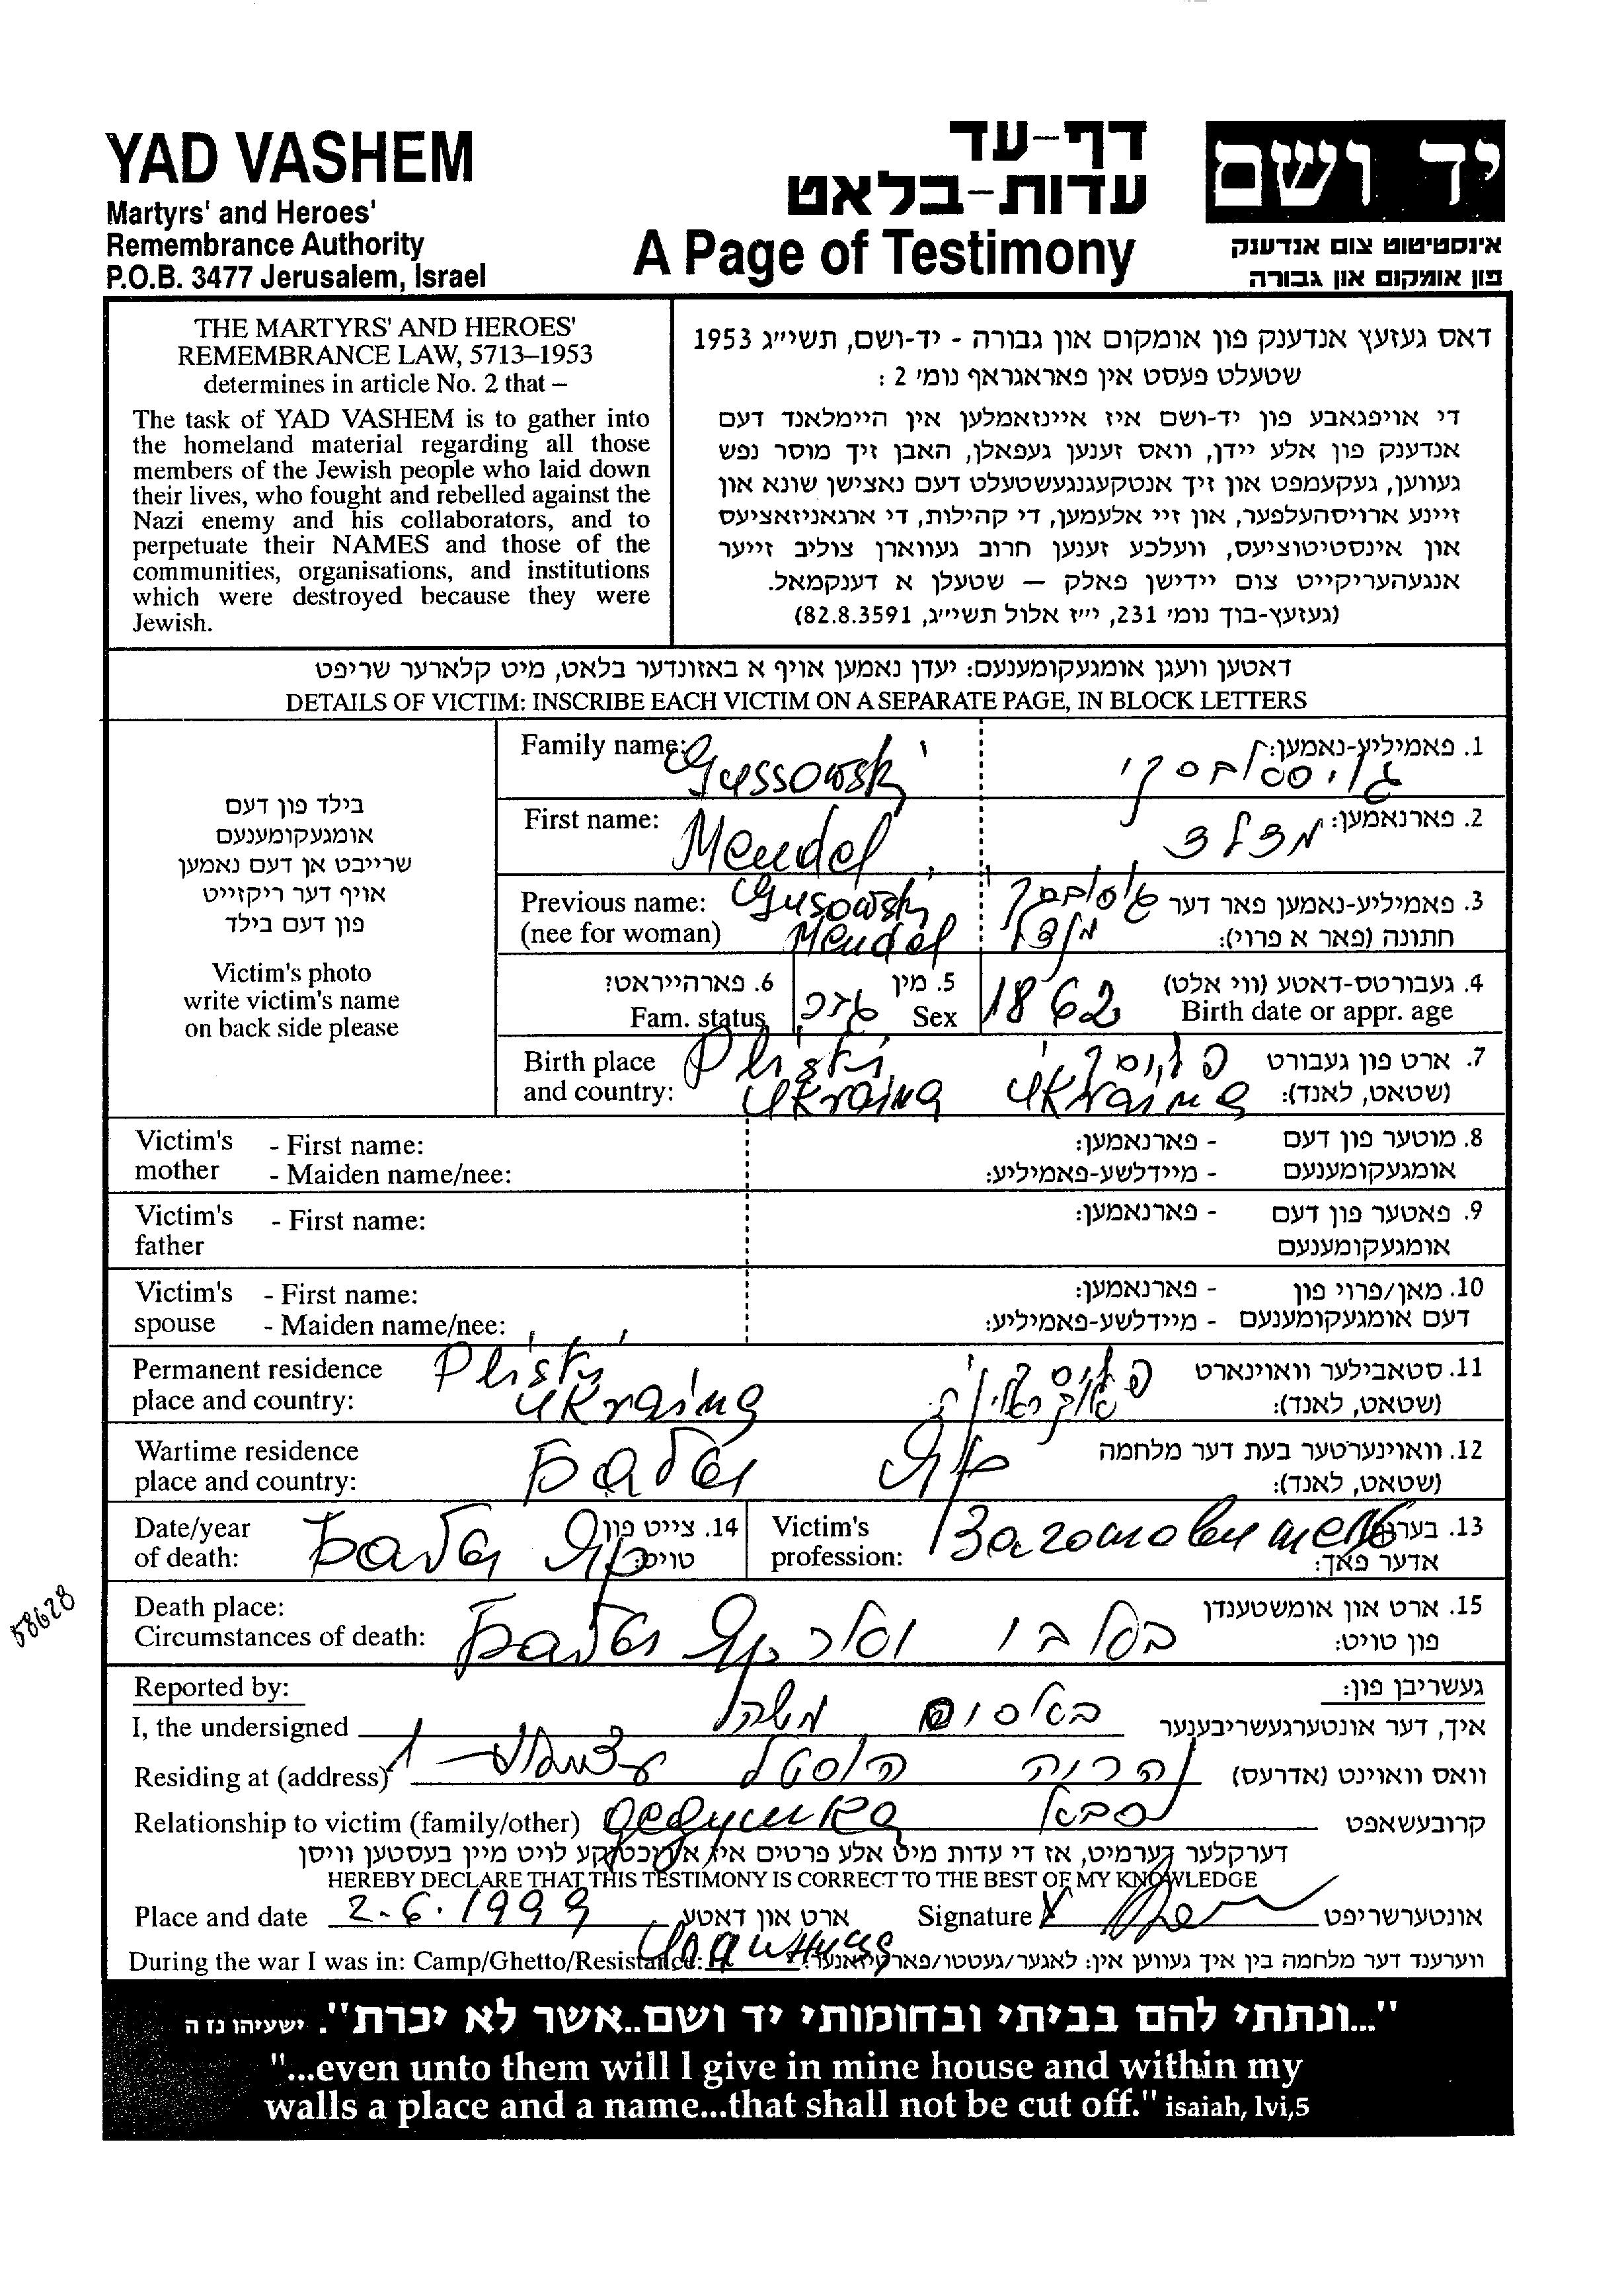 YAD VASHEM
Martyrs' and Heroes'
Remembrance Authority
P.O.B. 3477 Jerusalem, Israel
דף-עד
עדות-בלאט
A Page of Testimony
יד ושם
אינסטיטוט צום אנדענק
פון אומקום און גבורה
THE MARTYRS' AND HEROES'
REMEMBRANCE LAW, 5713–1953
determines in article No. 2 that –
The task of YAD VASHEM is to gather into
the homeland material regarding all those
members of the Jewish people who laid down
their lives, who fought and rebelled against the
Nazi enemy and his collaborators, and to
perpetuate their NAMES and those of the
communities, organisations, and institutions
which were destroyed because they were
Jewish.
דאס געזעץ אנדענק פון אומקום און גבורה - יד-ושם, תשי״ג 1953
שטעלט פעסט אין פאראגראף נומ׳ 2 :
די אויפגאבע פון יד-ושם איז איינזאמלען אין היימלאנד דעם
אנדענק פון אלע יידן, וואס זענען געפאלן, האבן זיך מוסר נפש
געווען, געקעמפט און זיך אנטקעגנגעשטעלט דעם נאצישן שונא און
זיינע ארויסהעלפער, און זיי אלעמען, די קהילות, די ארגאניזאציעס
און אינסטיטוציעס, וועלכע זענען חרוב געווארן צוליב זייער
אנגעהעריקייט צום יידישן פאלק – שטעלן א דענקמאל.
(געזעץ-בוך נומ׳ 231, י״ז אלול תשי״ג, 82.8.3591)
דאטען וועגן אומגעקומענעם: יעדן נאמען אויף א באזונדער בלאט, מיט קלארער שריפט
DETAILS OF VICTIM: INSCRIBE EACH VICTIM ON A SEPARATE PAGE, IN BLOCK LETTERS
בילד פון דעם
אומגעקומענעם
שרייבט אן דעם נאמען
אויף דער ריקזייט
פון דעם בילד
Victim's photo
write victim's name
on back side please
Family name: Gussowski גוסובסקי 1. פאמיליע-נאמען:
First name: Mendel מנדל 2. פארנאמען:
Previous name: Gusowski 3. פאמיליע-נאמען פאר דער
(nee for woman) Mendel מנדל חתונה (פאר א פרוי):
6. פארהייראט? 5. מין 4. געבורטס-דאטע (ווי אלט)
Fam. status זכר Sex 1862 Birth date or appr. age
Birth place Pliski פליסקי 7. ארט פון געבורט
and country: Ukraina Ukraina (שטאט, לאנד):
Victim's - First name: - פארנאמען: 8. מוטער פון דעם
mother - Maiden name/nee: - מיידלשע-פאמיליע: אומגעקומענעם
Victim's - First name: - פארנאמען: 9. פאטער פון דעם
father אומגעקומענעם
Victim's - First name: - פארנאמען: 10. מאן/פרוי פון
spouse - Maiden name/nee: - מיידלשע-פאמיליע: דעם אומגעקומענעם
Permanent residence Pliski פליסקי 11. סטאבילער וואוינארט
place and country: Ukraina אוקראינה (שטאט, לאנד):
Wartime residence 12. וואוינערטער בעת דער מלחמה
place and country: (שטאט, לאנד):
Date/year 14. צייט פון Victim's Заготовитель 13.
of death: טויט: profession: אדער פאך:
58628
Death place: 15. ארט און אומשטענדן
Circumstances of death: פון טויט:
Reported by: געשריבן פון:
I, the undersigned איך, דער אונטערגעשריבענער
Residing at (address) הוסטל 1 וואס וואוינט (אדרעס)
Relationship to victim (family/other) дедушка סבא קרובעשאפט
דערקלער דערמיט, אז די עדות מיט אלע פרטים איז לויט מיין בעסטען וויסן
HEREBY DECLARE THAT THIS TESTIMONY IS CORRECT TO THE BEST OF MY KNOWLEDGE
Place and date 2.6.1999 ארט און דאטע Signature אונטערשריפט
During the war I was in: Camp/Ghetto/Resistance: ווערענד דער מלחמה בין איך געווען אין: לאגער/געטטו/פארטיזאנער:
"...ונתתי להם בביתי ובחומותי יד ושם..אשר לא יכרת". ישעיהו נז ה
"...even unto them will I give in mine house and within my
walls a place and a name...that shall not be cut off." isaiah, lvi,5